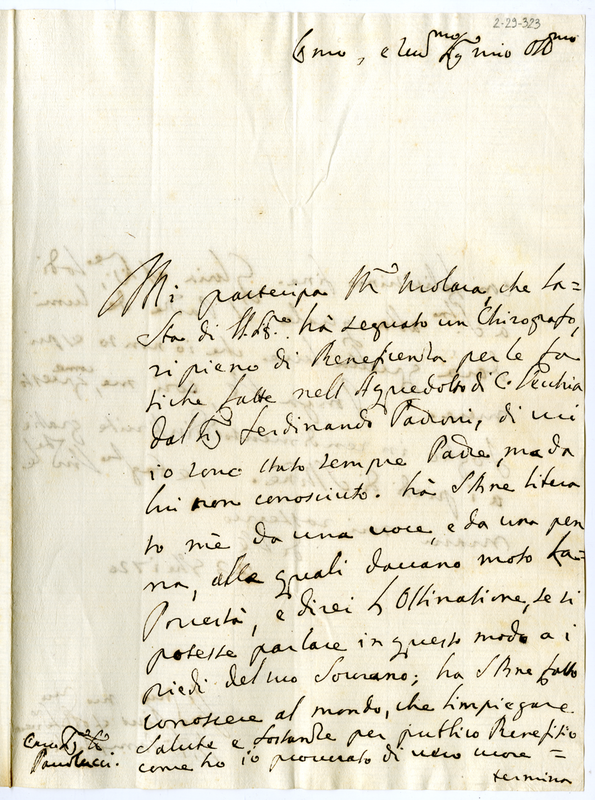 2-29-323
Emo, e Rmo Sig mio Ossmo
Mi partecipa Mr Molara, che la =
Sta di N. Sre hà segnato un Chirografo,
ripieno di Beneficenza per le fa
tiche fatte nell Aquedotto di C. Vecchia
dal Sig Ferdinando Paccioni, di cui
io sono stato sempre Padre, ma da
lui non conosciuto. hà S Bne libera
to me da una voce, e da una pen
na, alle quali davano moto la =
Povertà, e direi l Ostinatione, se si
potesse parlare in questo modo a i
piedi del suo Sovrano; ha S Bne fatto
conoscere al mondo, che l'impiegare
Salute e Sostanze per publico Benefitio
come ho io procurato di vero cuore =
termina
Card Sig
Paulucci.